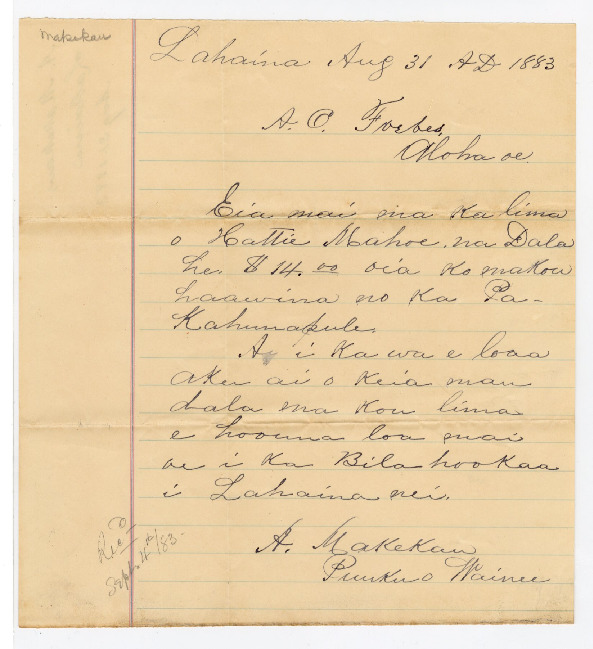 Makekau
Lahaina Aug 31 AD 1883
A. O. Forbes,
Aloha oe.
Eia mai ma ka lima
o Hattie Mahoe, na Dala
he $14.00 oia ko makou
haawina no ka Pa-
Kahunapule.
A i ka wa e loaa
aku ai o keia mau
dala ma kou lima
e hoouna loa mai
oe i ka Bila hookaa
i Lahaina nei.
A. Makekau
Puuku o Wainee
Rec'd
Sept. 4th/83.